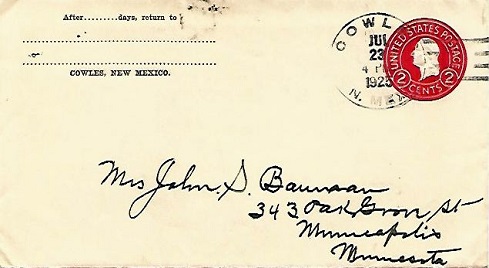 After........days, return to
COWLES, NEW MEXICO.
COWL
JUL
23
4 P
1925
N. MEX
UNITED STATES POSTAGE
2 2
CENTS
Mrs John. S. Bauman
343 Oak Grove St
Minneapolis
Minnesota